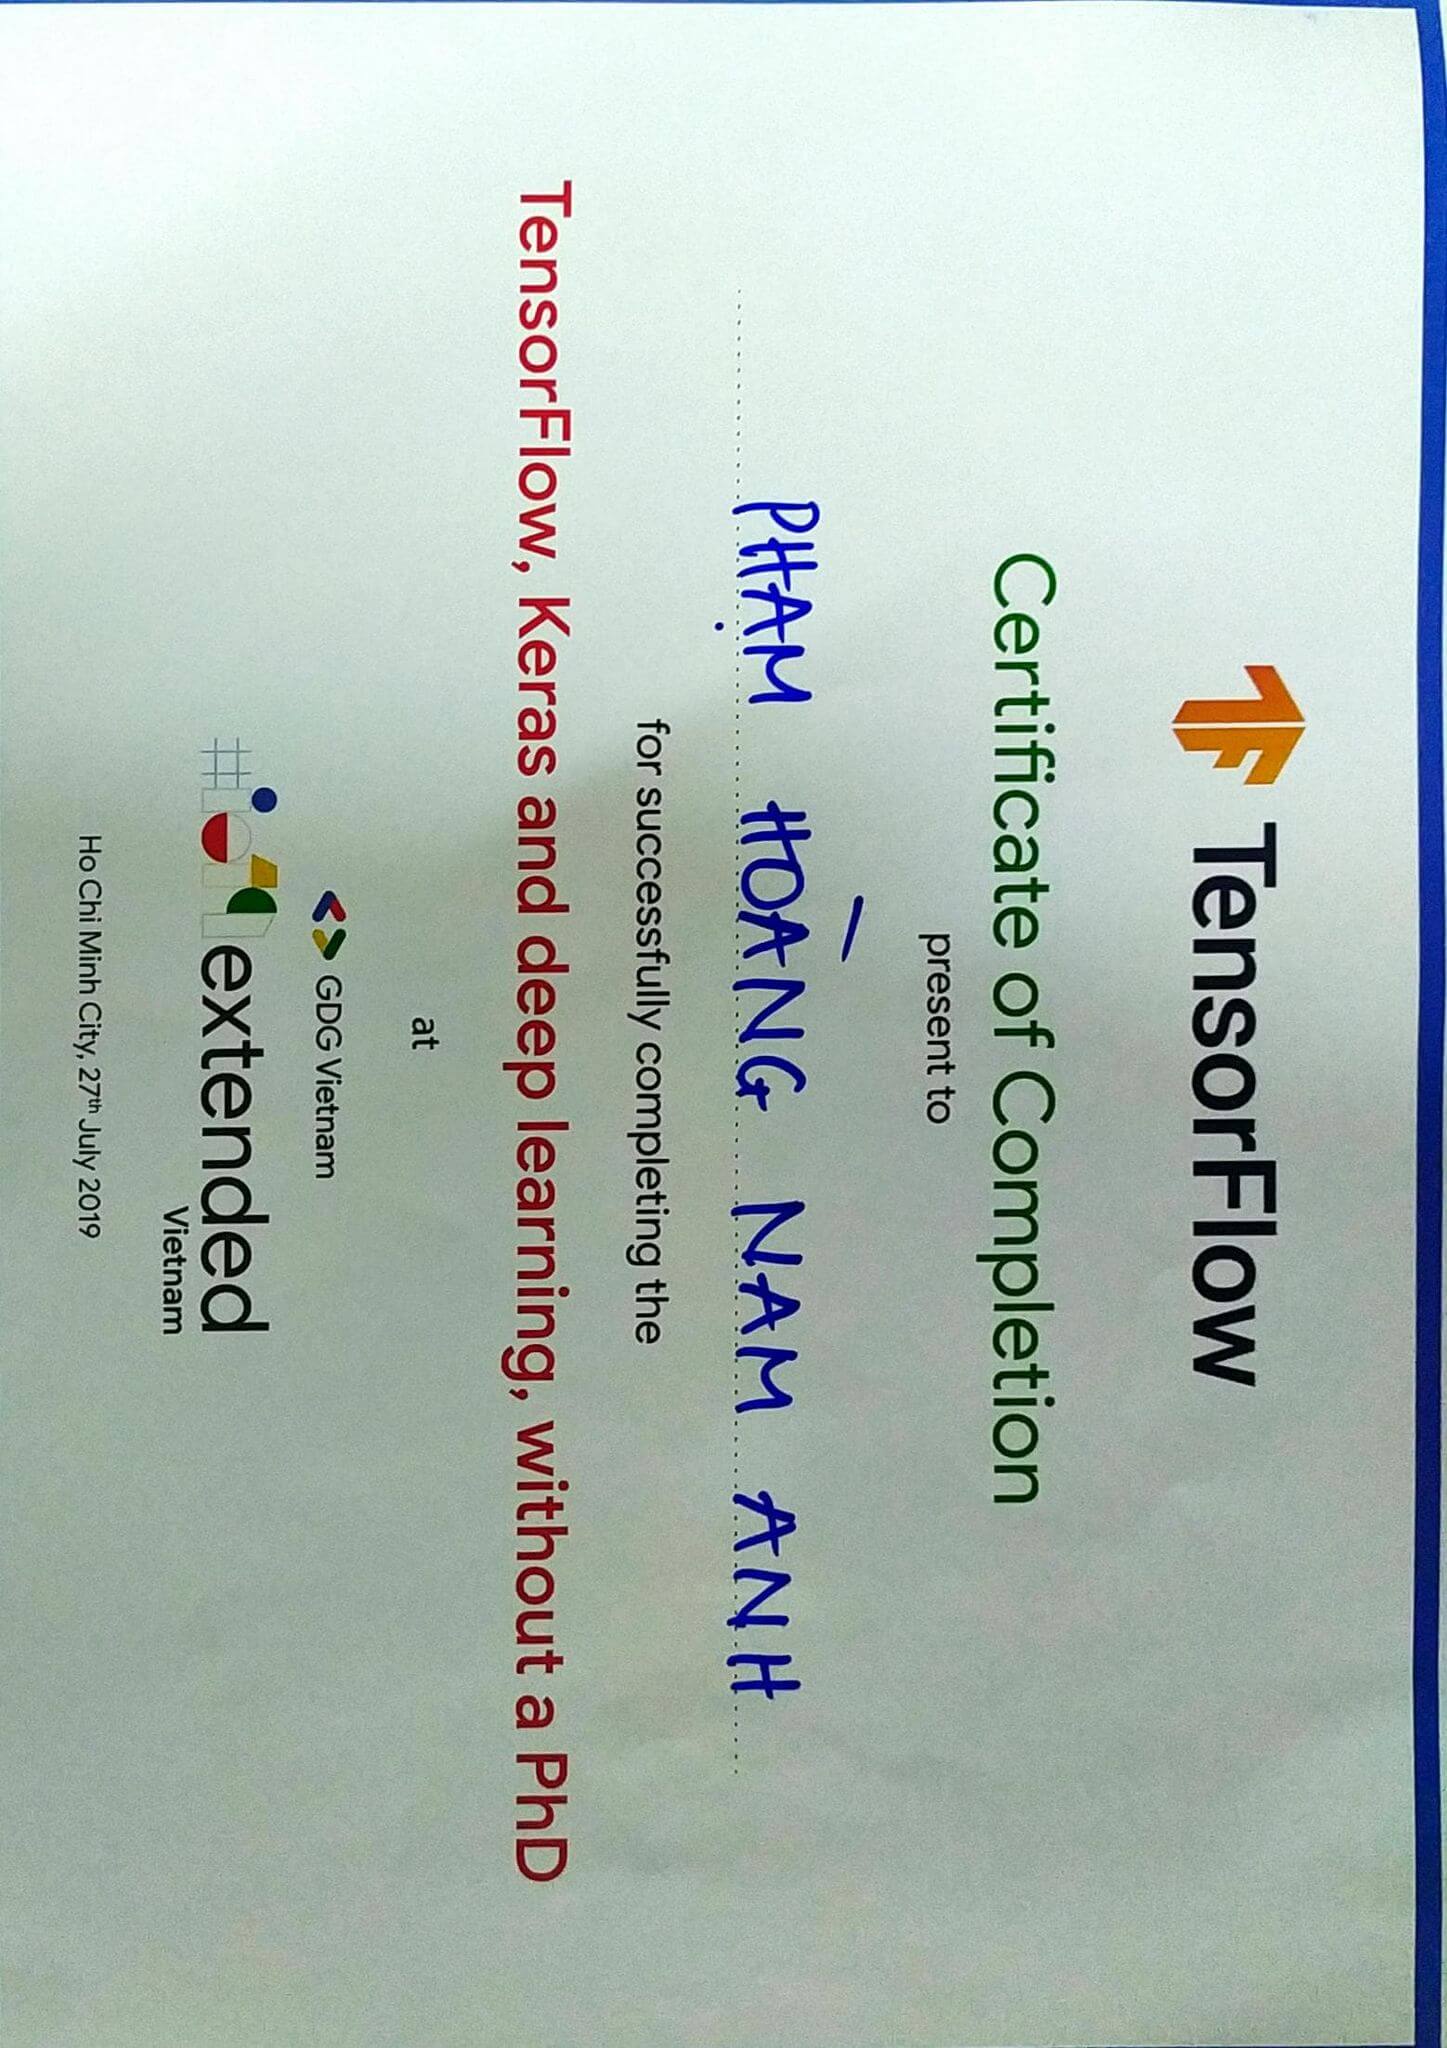 TensorFlow
Certificate of Completion
present to
PHẠM HOÀNG NAM ANH
for successfully completing the
TensorFlow, Keras and deep learning, without a PhD
at
<> GDG Vietnam
#io19 extended
Vietnam
Ho Chi Minh City, 27th July 2019